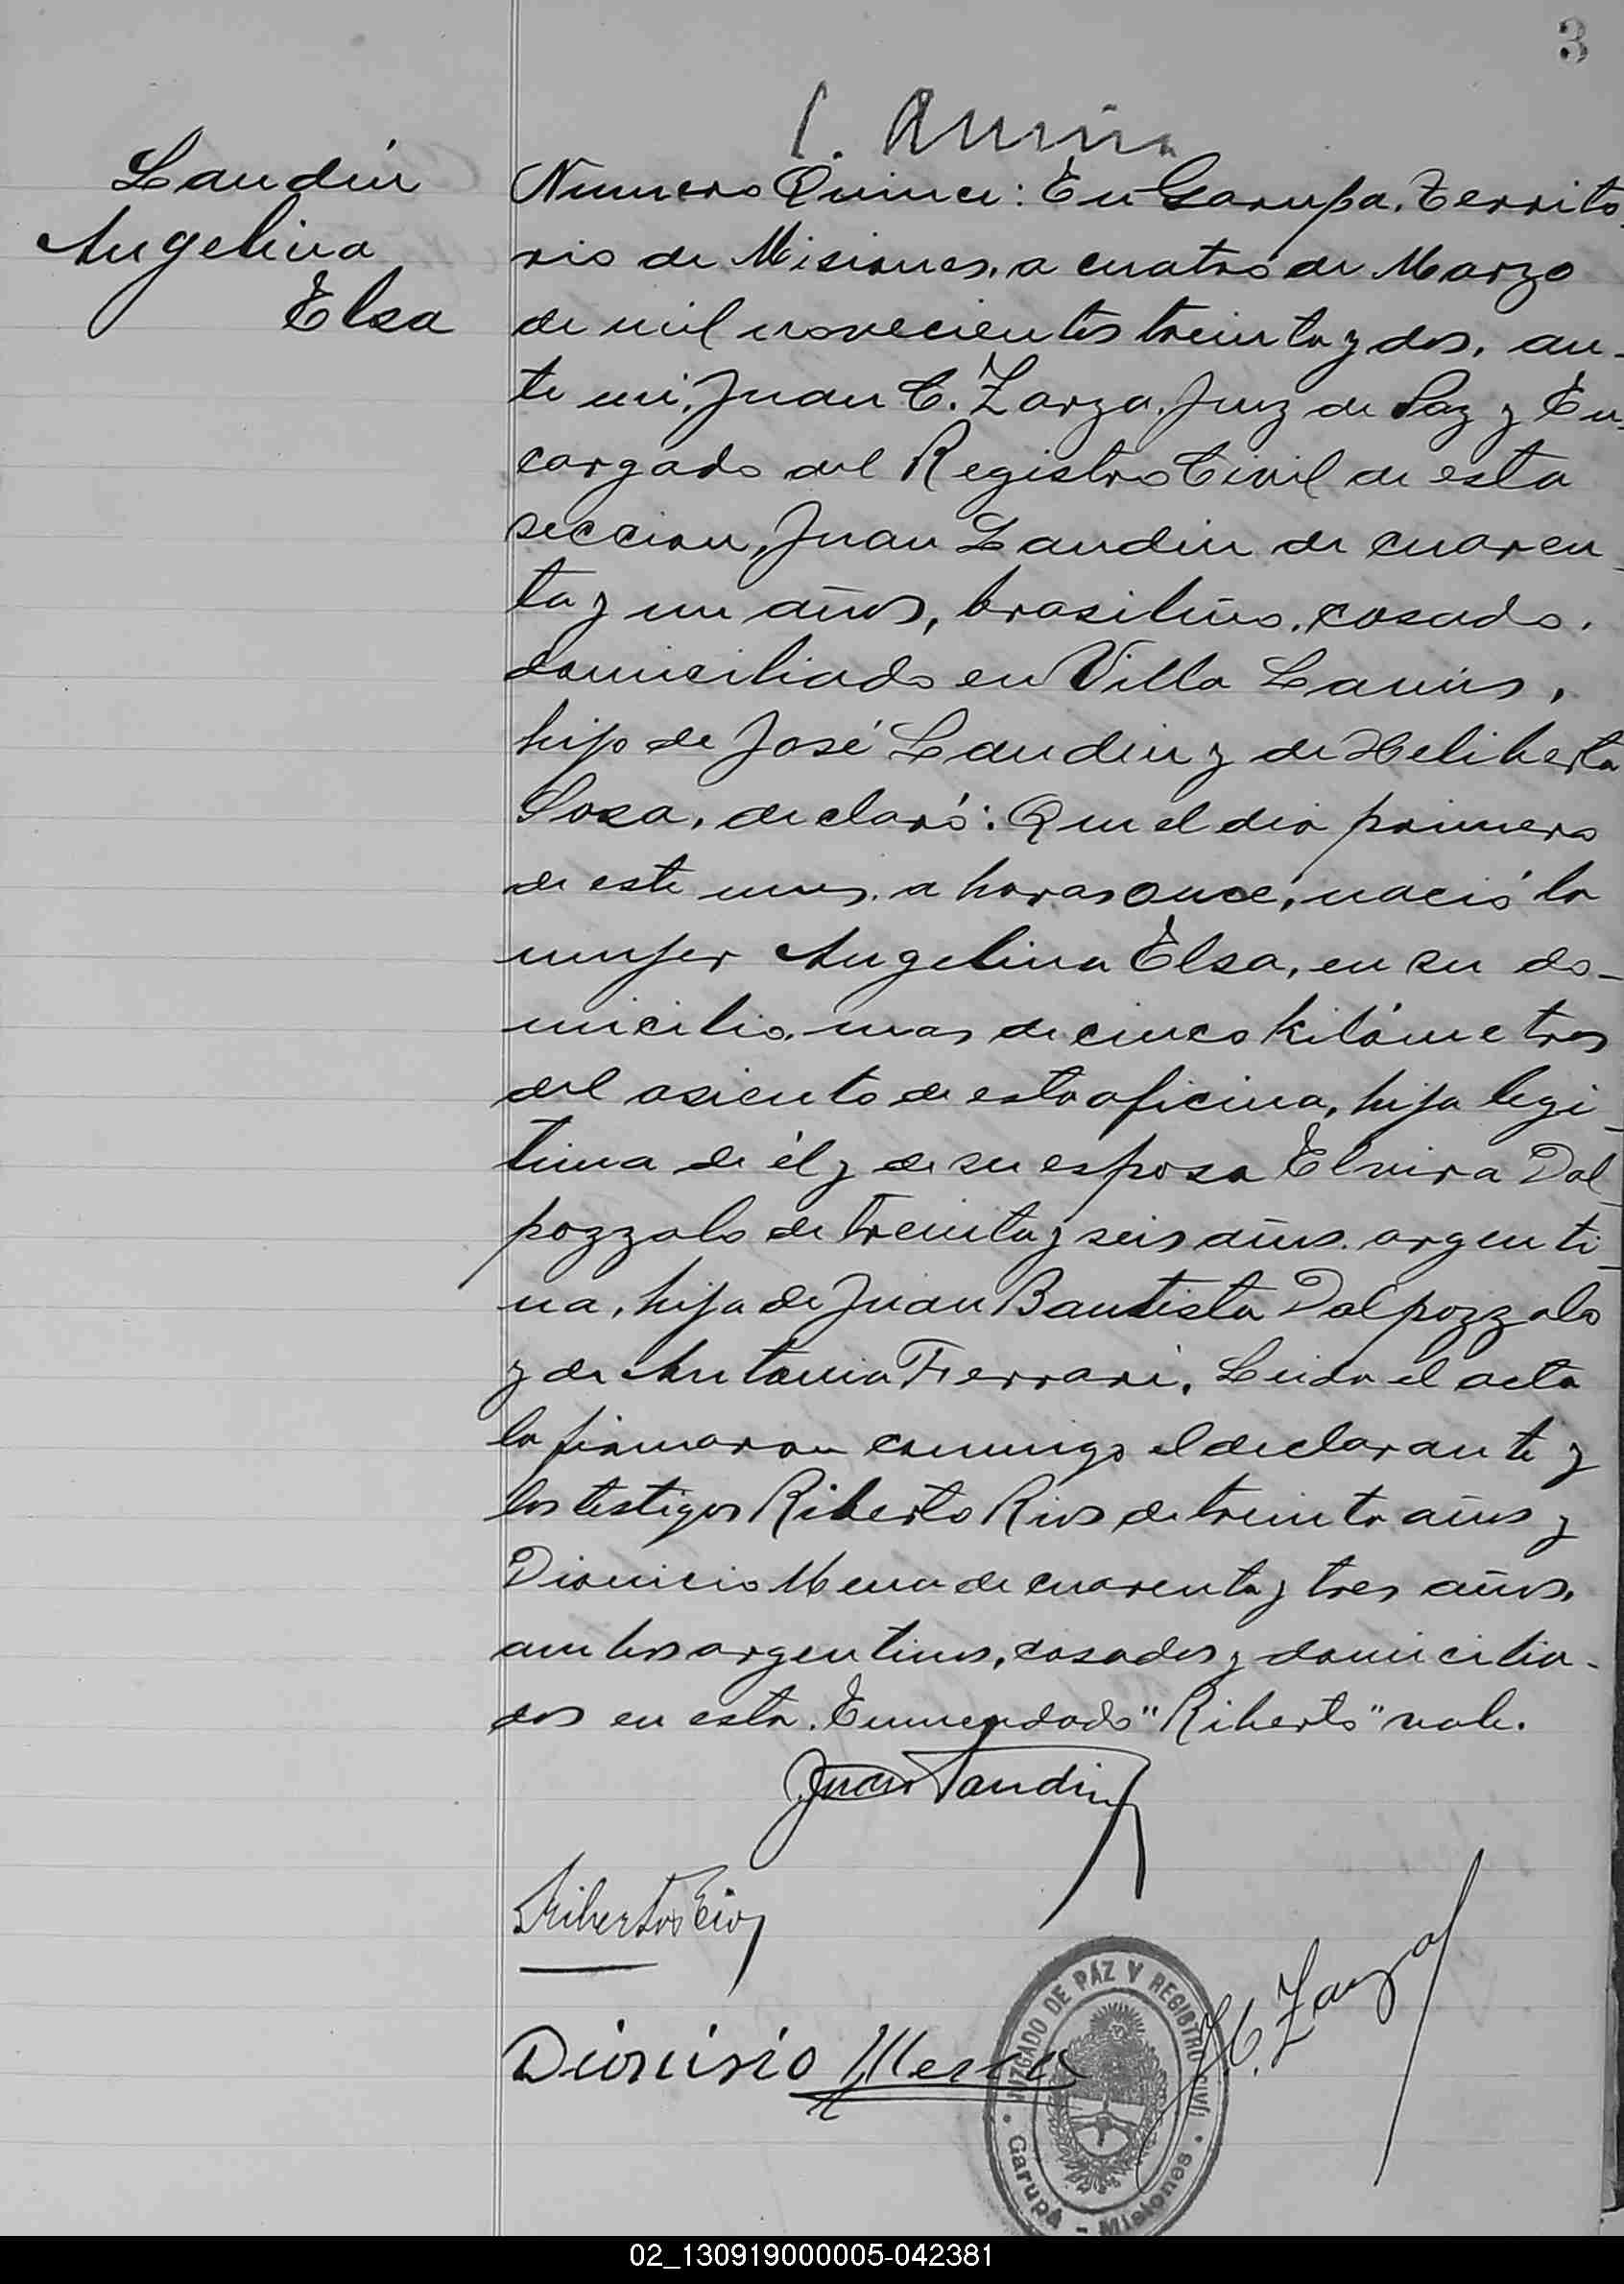 3
Landin
Angelina
Elsa
Numero Quince: En Garupa, Territo-
rio de Misiones, a cuatro de Marzo
de mil novecientos treinta y dos, an-
te mi, Juan C. Zarza, Juez de Paz y En-
cargado del Registro Civil de esta
seccion, Juan Landin de cuaren-
ta y un años, brasileño, casado,
domiciliado en Villa Lanús,
hijo de José Landin y de Heliberta
Sosa, declaró: Que el dia primero
de este mes, a horas once, nació la
mujer Angelina Elsa, en su do-
micilio, mas de cinco kilómetros
del asiento de esta oficina, hija legi-
tima de él y de su esposa Elvira Dal-
pozzalo de treinta y seis años, argenti-
na, hija de Juan Bautista Dalpozzalo
y de Antonia Ferrari. Leida el acta
la firmaron conmigo el declarante y
los testigos Riberto Rios de treinta años y
Dionicio Mena de cuarenta y tres años,
ambos argentinos, casados y domicilia-
dos en esta. Enmendado "Riberto" vale.
Juan Landin
Riberto Rios
Dionisio Mena
J. C. Zarza
JUZGADO DE PAZ Y REGISTRO CIVIL
Garupá - Misiones
02_130919000005-042381